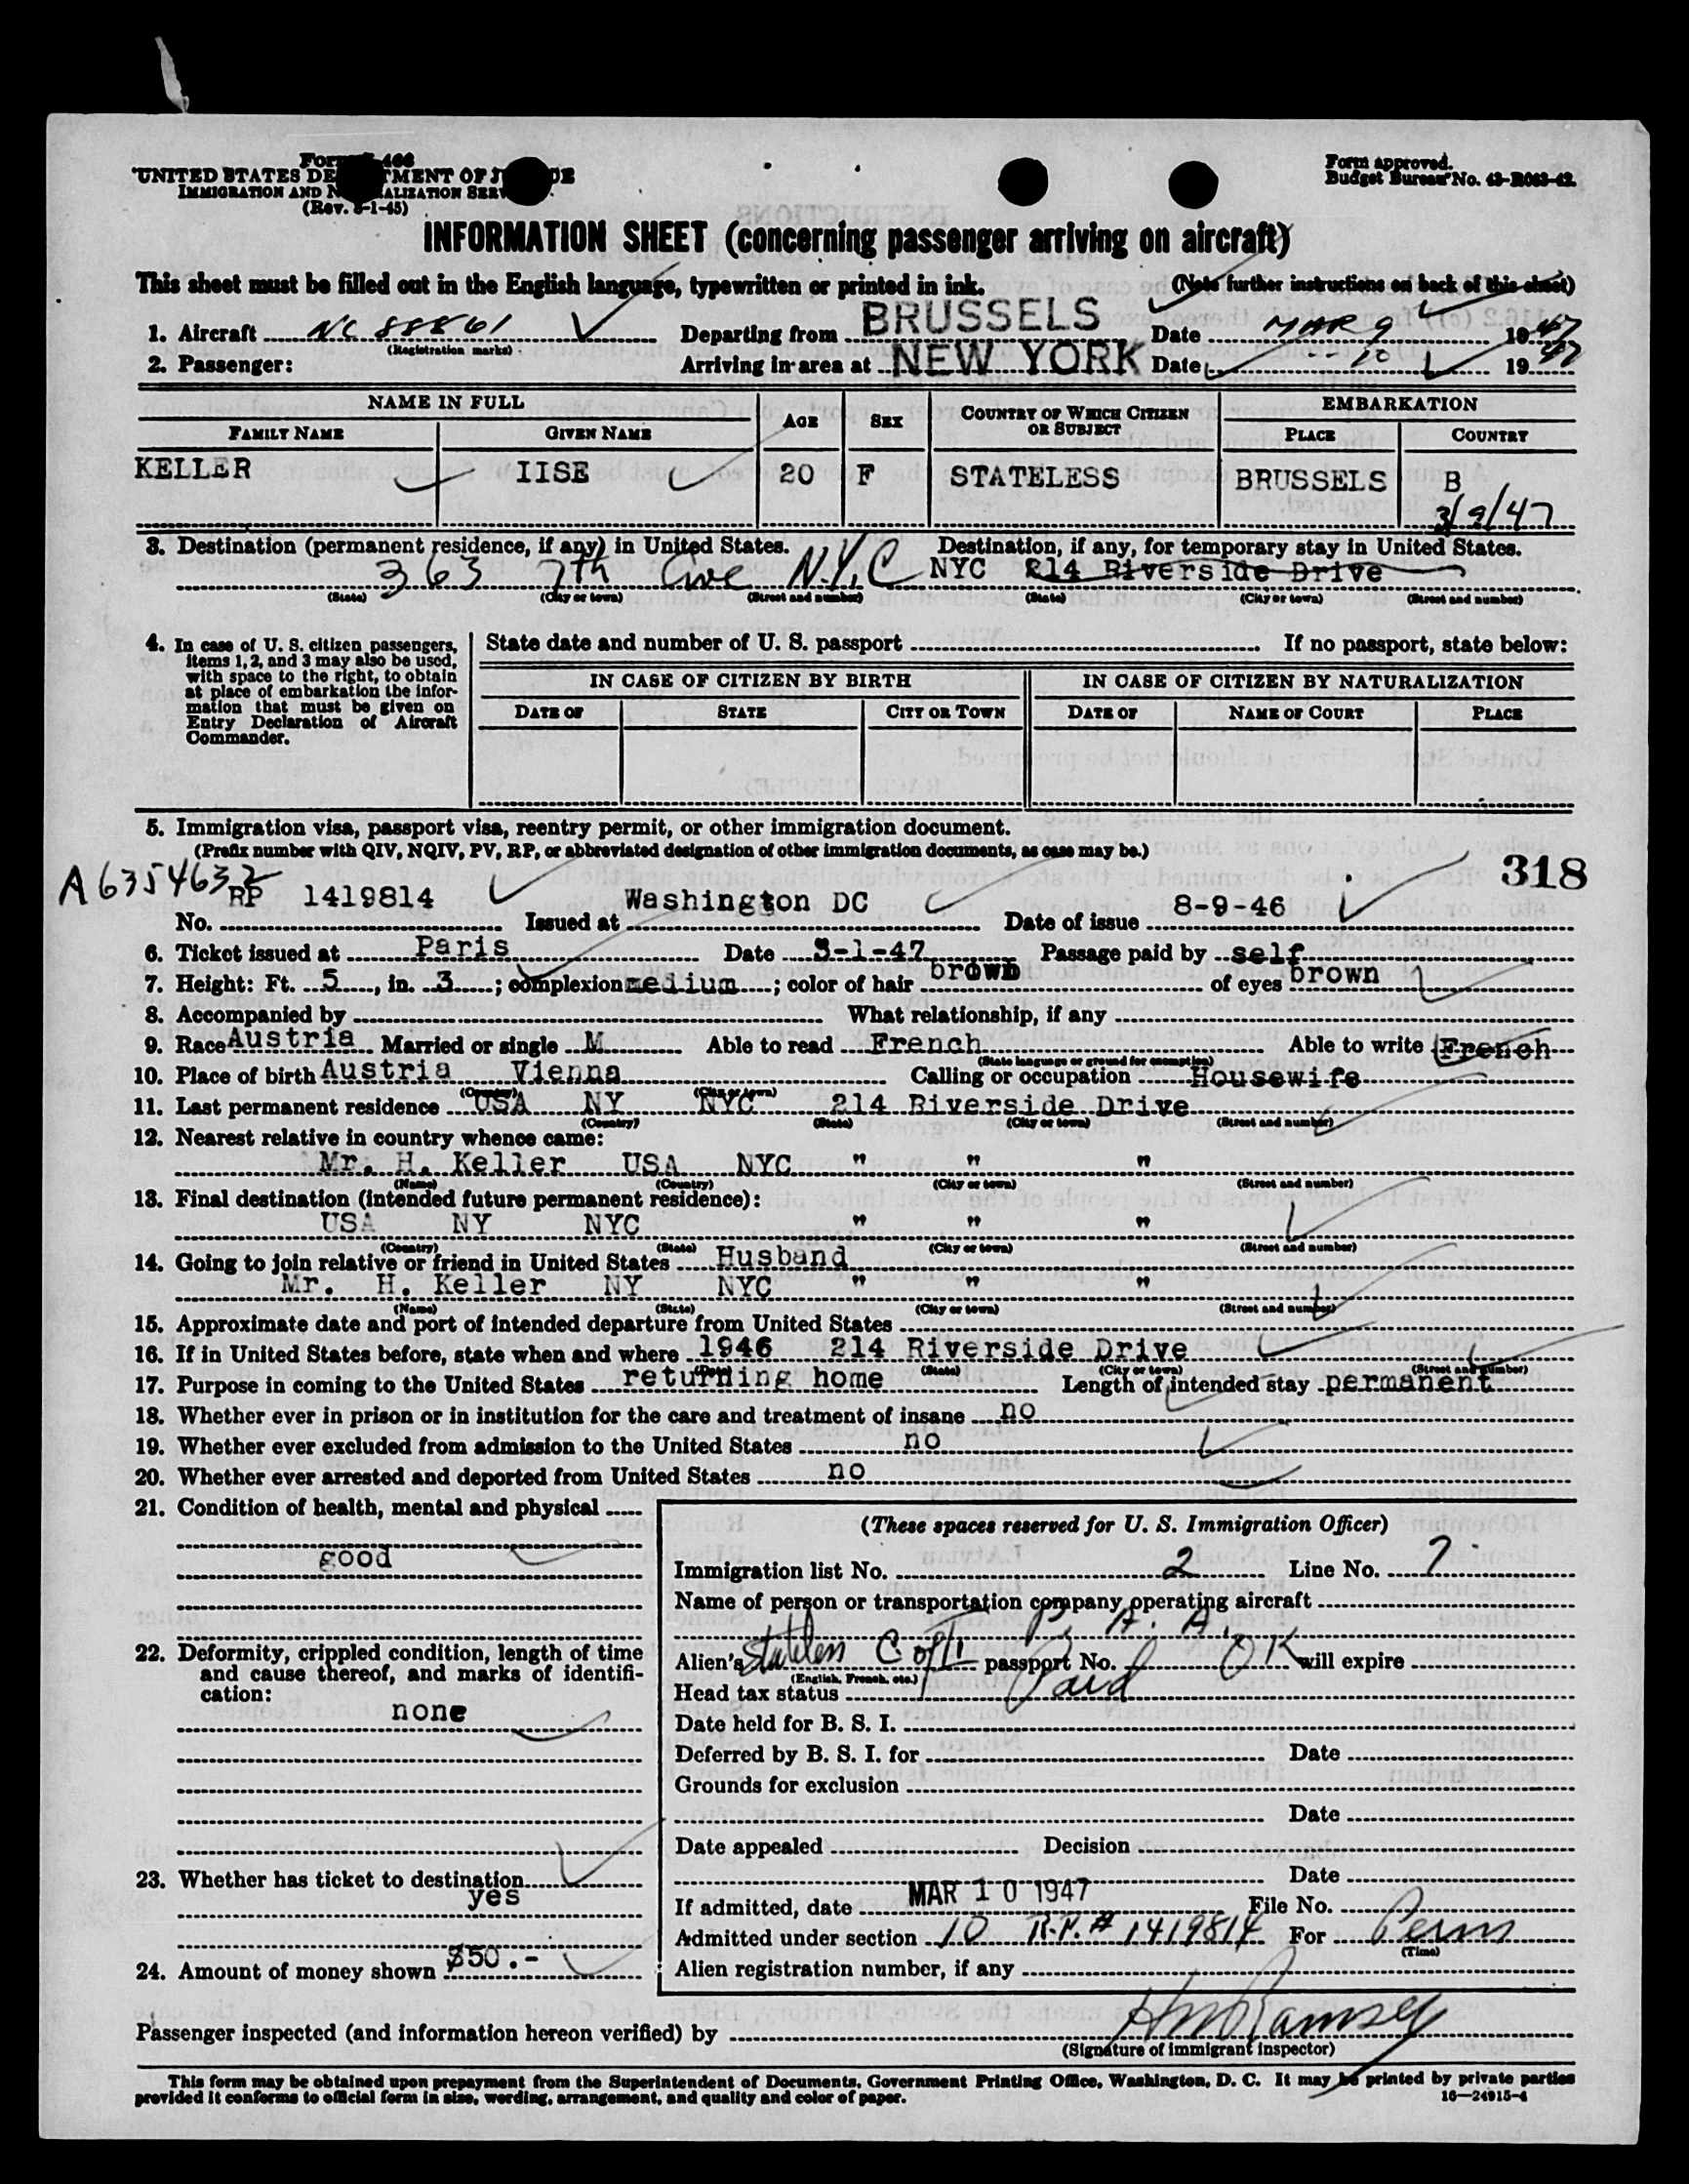 Form I-466
UNITED STATES DEPARTMENT OF JUSTICE
IMMIGRATION AND NATURALIZATION SERVICE
(Rev. 8-1-45)
Form approved.
Budget Bureau No. 43-R083-42.
INFORMATION SHEET (concerning passenger arriving on aircraft)
This sheet must be filled out in the English language, typewritten or printed in ink. (Note further instructions on back of this sheet)
1. Aircraft NC 88861 Departing from BRUSSELS Date MAR 9 1947
(Registration marks)
2. Passenger: Arriving in area at NEW YORK Date - 10 1947
NAME IN FULL AGE SEX COUNTRY OF WHICH CITIZEN OR SUBJECT EMBARKATION
FAMILY NAME GIVEN NAME PLACE COUNTRY
KELLER IISE 20 F STATELESS BRUSSELS B
3/9/47
3. Destination (permanent residence, if any) in United States. Destination, if any, for temporary stay in United States.
363 7th Ave N.Y.C NYC 214 Riverside Drive
(State) (City or town) (Street and number) (State) (City or town) (Street and number)
4. In case of U. S. citizen passengers, items 1, 2, and 3 may also be used, with space to the right, to obtain at place of embarkation the information that must be given on Entry Declaration of Aircraft Commander.
State date and number of U. S. passport If no passport, state below:
IN CASE OF CITIZEN BY BIRTH IN CASE OF CITIZEN BY NATURALIZATION
DATE OF STATE CITY OR TOWN DATE OF NAME OF COURT PLACE
5. Immigration visa, passport visa, reentry permit, or other immigration document.
(Prefix number with QIV, NQIV, PV, RP, or abbreviated designation of other immigration documents, as case may be.)
318
A6354632
No. RP 1419814 Issued at Washington DC Date of issue 8-9-46
6. Ticket issued at Paris Date 3-1-47 Passage paid by self
7. Height: Ft. 5, in. 3; complexion medium; color of hair brown of eyes brown
8. Accompanied by What relationship, if any
9. Race Austria Married or single M Able to read French Able to write French
(State language or ground for exemption)
10. Place of birth Austria Vienna Calling or occupation Housewife
(Country) (City or town)
11. Last permanent residence USA NY NYC 214 Riverside Drive
(Country) (State) (City or town) (Street and number)
12. Nearest relative in country whence came:
Mr. H. Keller USA NYC " " "
(Name) (Country) (City or town) (Street and number)
13. Final destination (intended future permanent residence):
USA NY NYC " " "
(Country) (State) (City or town) (Street and number)
14. Going to join relative or friend in United States Husband
Mr. H. Keller NY NYC " " "
(Name) (State) (City or town) (Street and number)
15. Approximate date and port of intended departure from United States
16. If in United States before, state when and where 1946 214 Riverside Drive
(Date) (State) (City or town) (Street and number)
17. Purpose in coming to the United States returning home Length of intended stay permanent
18. Whether ever in prison or in institution for the care and treatment of insane no
19. Whether ever excluded from admission to the United States no
20. Whether ever arrested and deported from United States no
21. Condition of health, mental and physical
good
22. Deformity, crippled condition, length of time and cause thereof, and marks of identification:
none
23. Whether has ticket to destination
yes
24. Amount of money shown $50.-
(These spaces reserved for U. S. Immigration Officer)
Immigration list No. 2 Line No. 7
Name of person or transportation company operating aircraft
P. A. A.
Alien's Stateless C of I passport No. OK will expire
(English, French, etc.)
Head tax status Paid
Date held for B. S. I.
Deferred by B. S. I. for Date
Grounds for exclusion
Date
Date appealed Decision
Date
If admitted, date MAR 10 1947 File No.
Admitted under section 10 R.P.# 1419814 For Perm
(Time)
Alien registration number, if any
Passenger inspected (and information hereon verified) by HM Ramsey
(Signature of immigrant inspector)
This form may be obtained upon prepayment from the Superintendent of Documents, Government Printing Office, Washington, D. C. It may be printed by private parties
provided it conforms to official form in size, wording, arrangement, and quality and color of paper.
16—24915-4